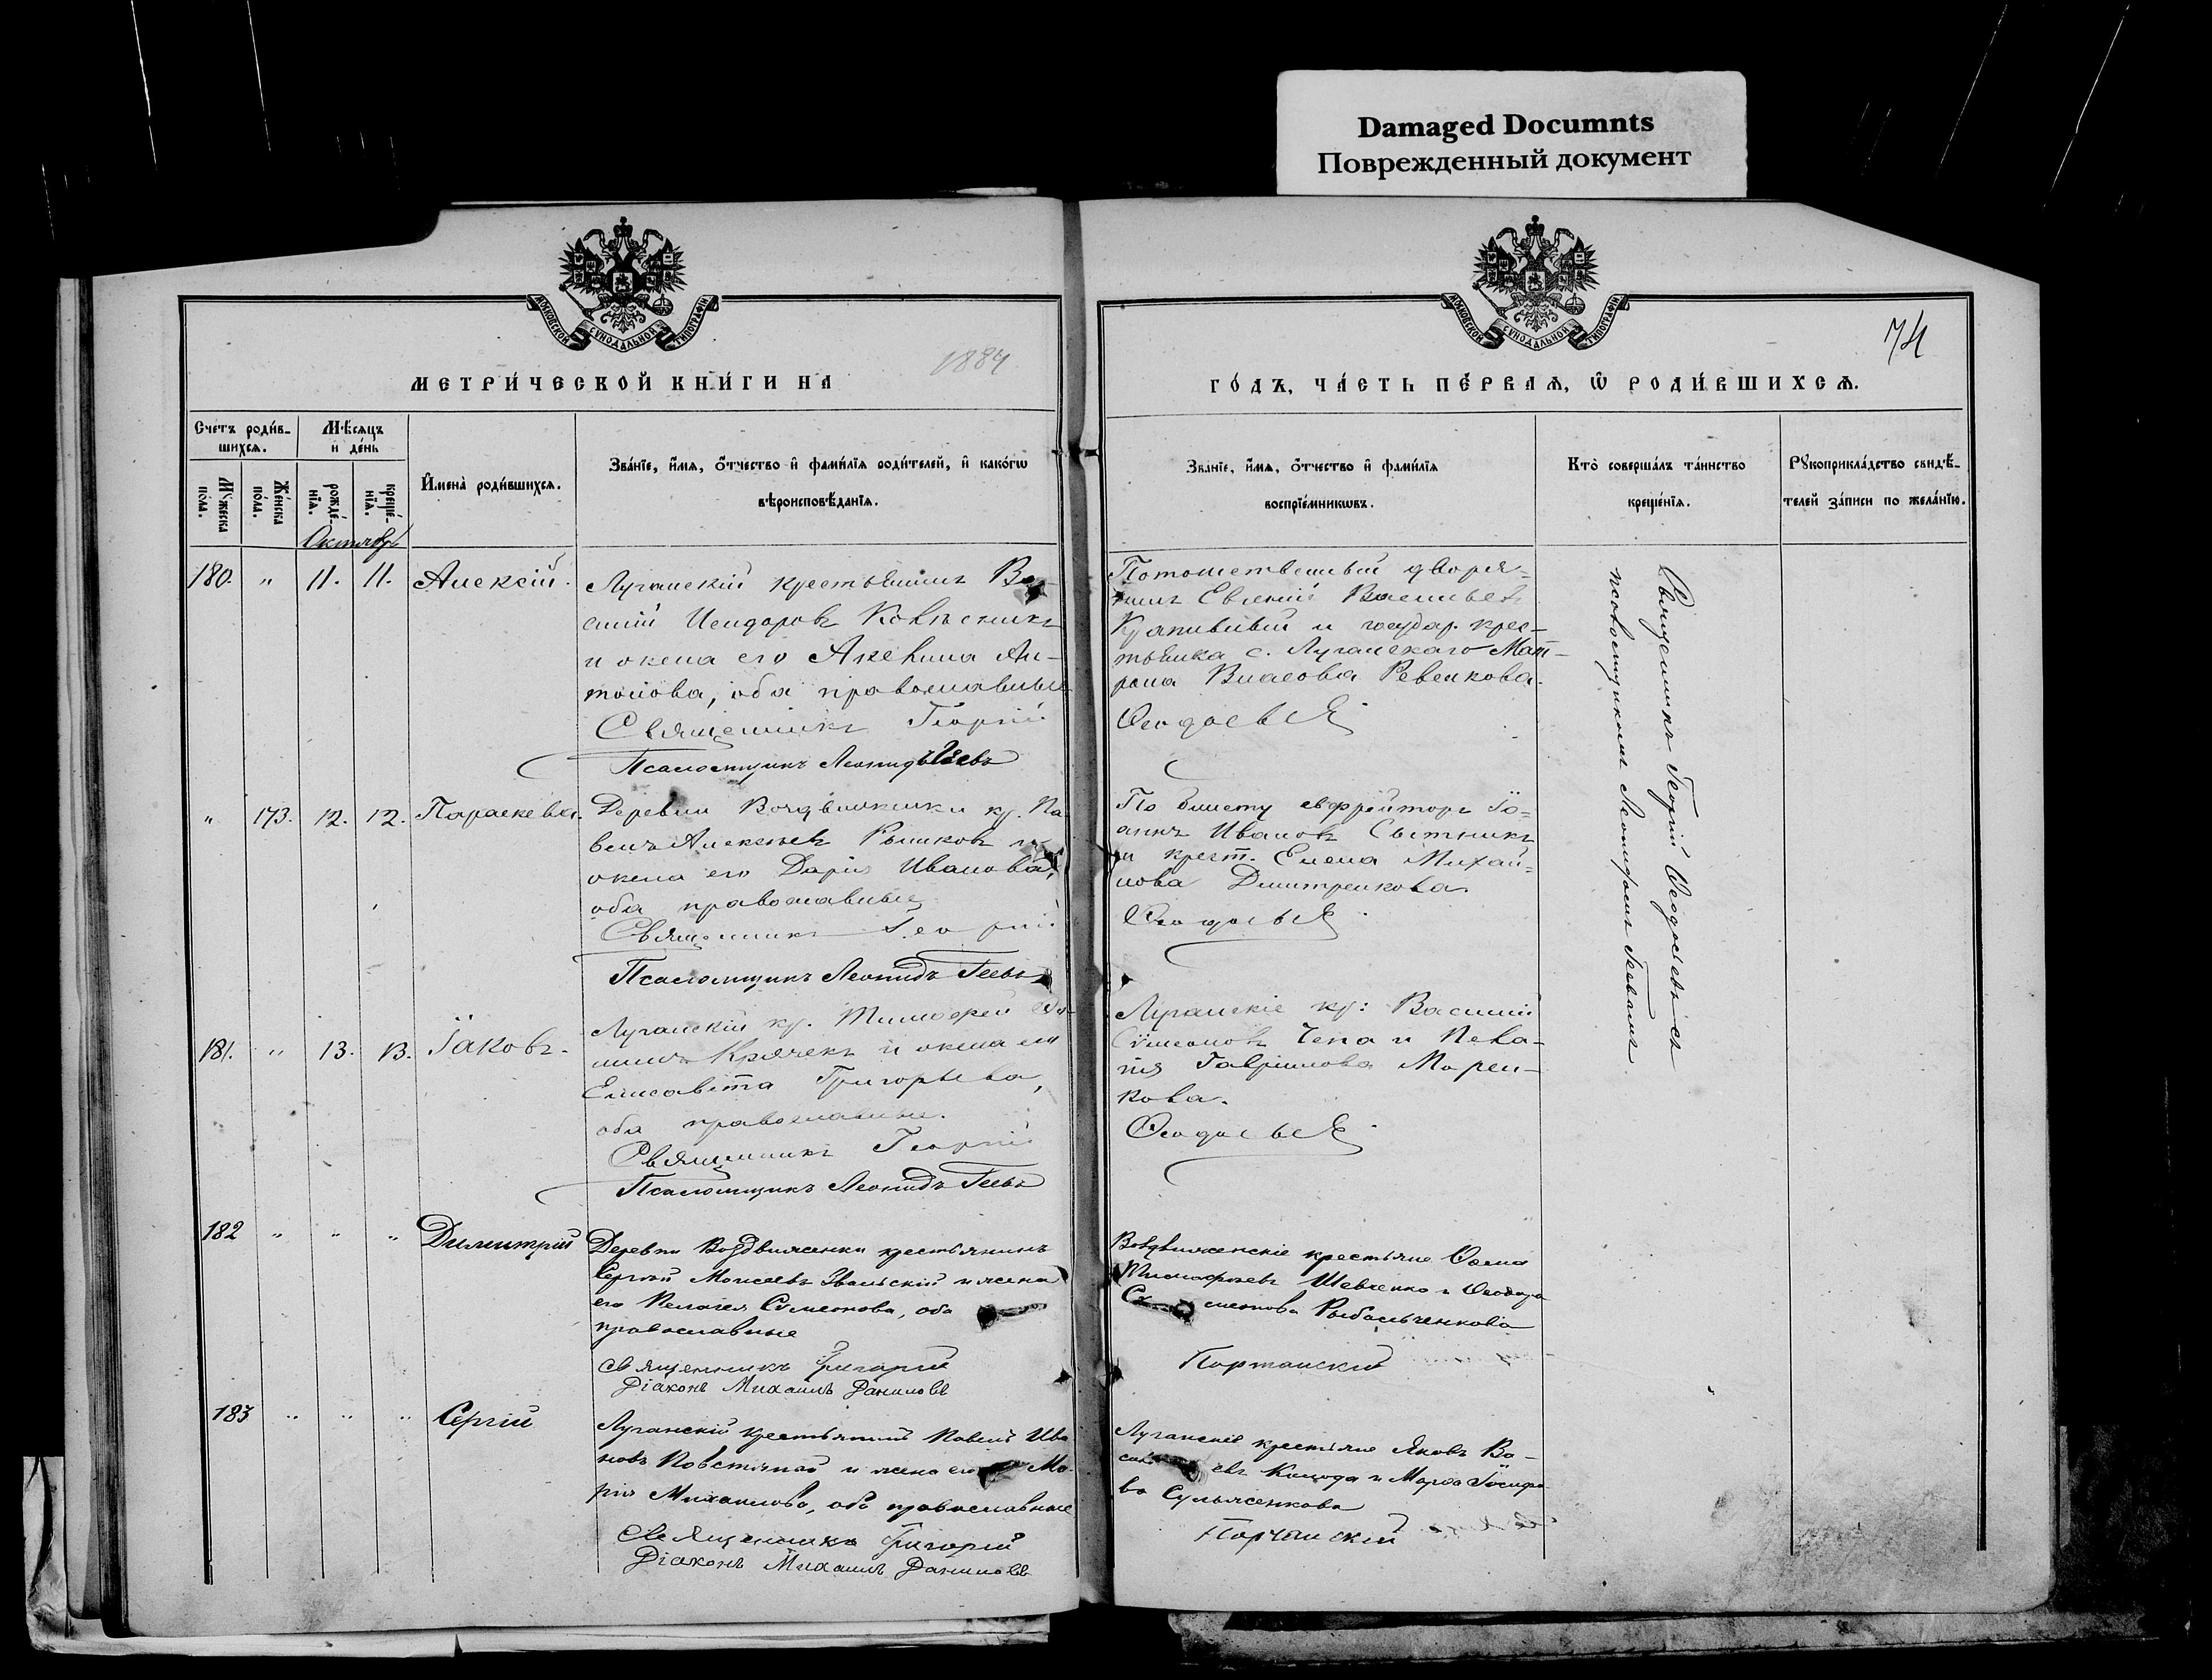 Damaged Documnts
Поврежденный документ
МОСКОВСКОЙ СѴНОДАЛЬНОЙ ТИПОГРАФІИ
МОСКОВСКОЙ СѴНОДАЛЬНОЙ ТИПОГРАФІИ
74
1884
МЕТРИ́ЧЕСКОЙ КНИ́ГИ НА
ГО́ДЪ, ЧА́СТЬ ПЕ́РВАѦ, Ѡ҆ РОДИ́ВШИХСѦ.
Счетъ роди́в-
шихсѧ.
Мѣ́сяцъ
и де́нь
Мꙋ́жеска
по́ла.
Же́нска
по́ла.
рожде́-
нїѧ.
креще́-
нїѧ.
И҆мена̀ роди́вшихсѧ.
Зва́нїе, и҆́мѧ, ѻ҆́тчество и҆ фами́лїѧ роди́телей, и҆ како́гѡ
вѣроисповѣ́данїѧ.
Зва́нїе, и҆́мѧ, ѻ҆́тчество и҆ фами́лїѧ
воспрїе́мникѡвъ.
Кто̀ соверша́лъ та́инство
креще́нїѧ.
Рꙋкоприкла́дство свидѣ́-
телей за́писи по жела́нїю.
Октябрь
180. " 11. 11. Алексій.
Луганскій крестьянинъ Ва-
силій Исидоровъ Ковъ
и жена его Акилина Ан-
тонова, оба православные
Священникъ Георгій
Псаломщикъ Леонидъ Геевъ
Потомственный дворя-
нинъ Евгеній Васильевъ
Крапивный и государ. крес-
тьянка с. Луганскаго Мат-
рона Власова Ревенкова.
Ѳеодосьевъ
" 173. 12. 12. Параскева.
Деревни Воздвиженки кр. Па-
велъ Алексѣевъ Рыжковъ и
жена его Дарія Иванова,
оба православные
Священникъ Георгій
Псаломщикъ Леонидъ Геевъ
По билету ефрейторъ Іо-
аннъ Ивановъ Сытникъ
и крест. Елена Михай-
лова Дмитренкова.
Ѳеодосьевъ
181. " 13. 13. Іаковъ.
Луганскій кр. Тимоѳей
Крячекъ и жена его
Елисавета Григорьева,
оба православные.
Священникъ Георгій
Псаломщикъ Леонидъ Геевъ
Луганскіе кр: Василій
Сѵмеоновъ Чепа и Пела-
гія Гавріилова Марен-
кова.
Ѳеодосьевъ
182 " " " Димитрій
Деревни Воздвиженки крестьянинъ
Сергій Моисеевъ Звальскій и жена
его Пелагея Сѵмеонова, оба
православные
Священникъ Григорій
Діаконъ Михаилъ Даниловъ
Воздвиженскіе крестьяне Ѳома
Тимоѳеевъ Шевченко и Ѳеодора
Симеонова Рыбальченкова
Портанскій
183 " " " Сергій
Луганскій крестьянинъ Павелъ Ива-
новъ Повстяной и жена его Ма-
рія Михаилова, оба православные
Священникъ Григорій
Діаконъ Михаилъ Даниловъ
Луганскіе крестьяне Яковъ Ва-
сильевъ Коцюда и Марѳа Іосифо-
ва Сульженкова
Портанскій
Священникъ Георгій Ѳеодосьевъ съ
псаломщикомъ Леонидомъ Геевымъ